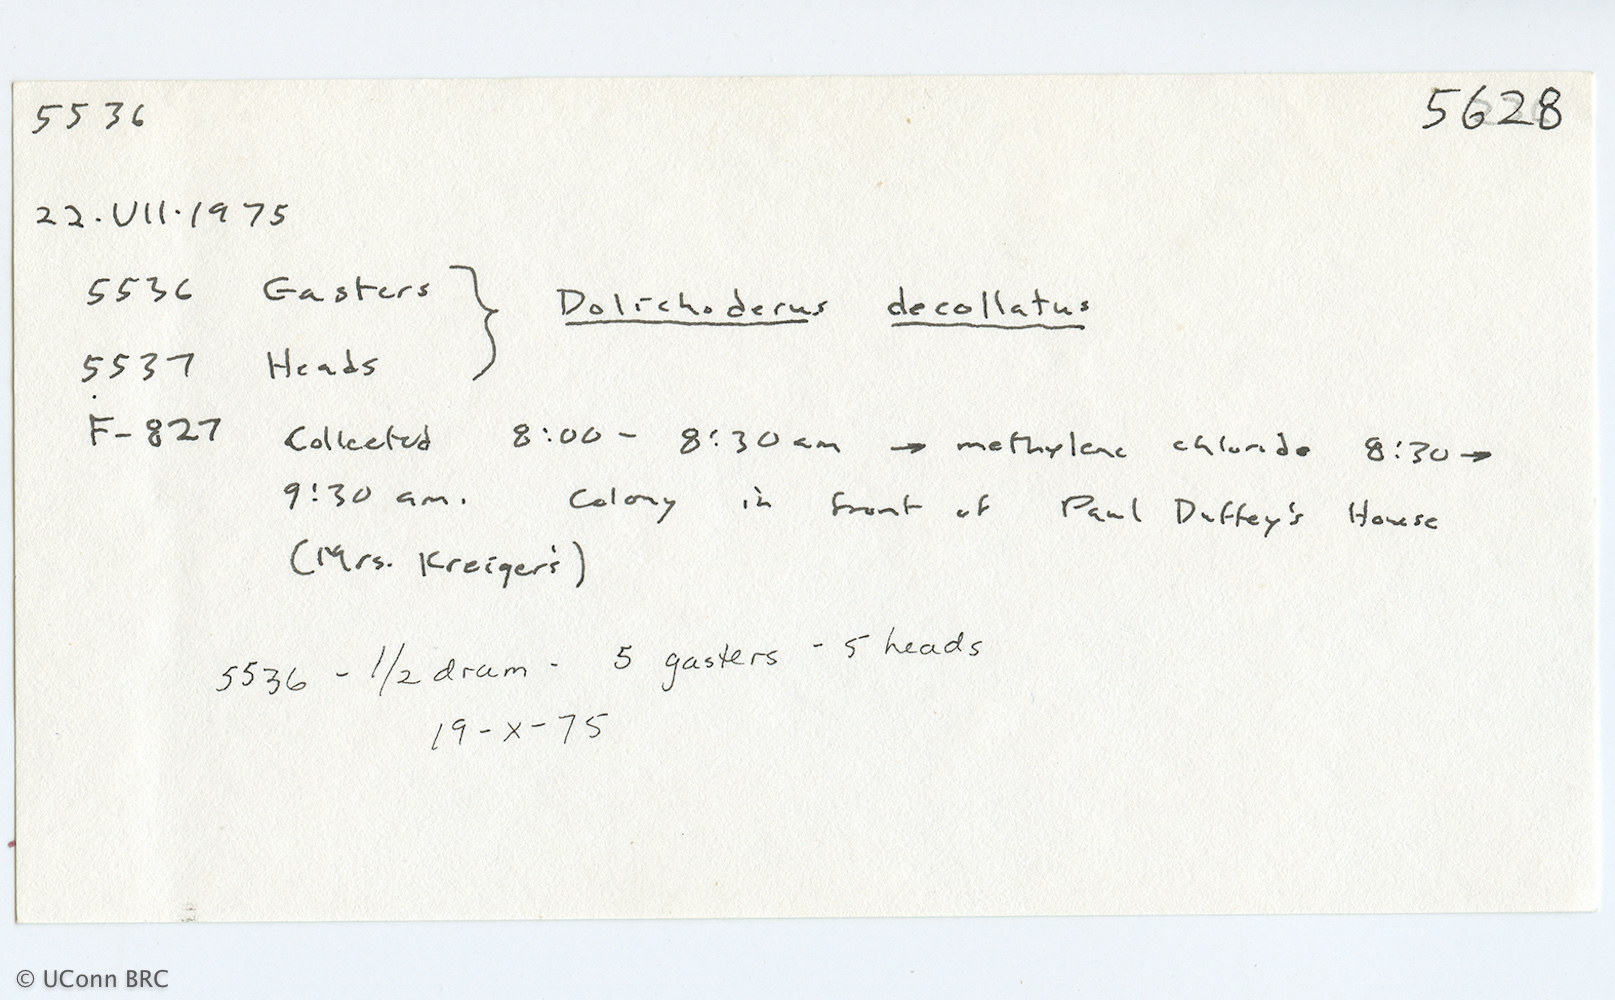 5536 5628
22.VII.1975
5536 Gasters
5537 Heads
Dolichoderus decollatus
F-827 Collected 8:00 - 8:30 am → methylene chloride 8:30 →
9:30 am. Colony in front of Paul Duffey's House
(Mrs. Kreiger's)
5536 - 1/2 dram - 5 gasters - 5 heads
19-X-75
© UConn BRC